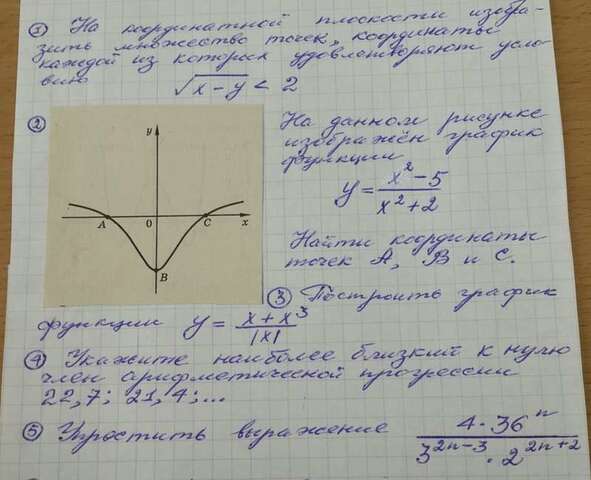 ① На координатной плоскости изобра-
зить множество точек, координаты
каждой из которых удовлетворяют усло-
вию
√x-y < 2
②
y
A 0 C x
B
На данном рисунке
изображён график
функции
y = (x² - 5)/(x² + 2)
Найти координаты
точек A, B и C.
③ Построить график
функции y = (x + x³)/|x|
④ Укажите наиболее близкий к нулю
член арифметической прогрессии
22,7; 21,4; ...
⑤ Упростить выражение (4 · 36ⁿ)/(3²ⁿ⁻³ · 2²ⁿ⁺²)